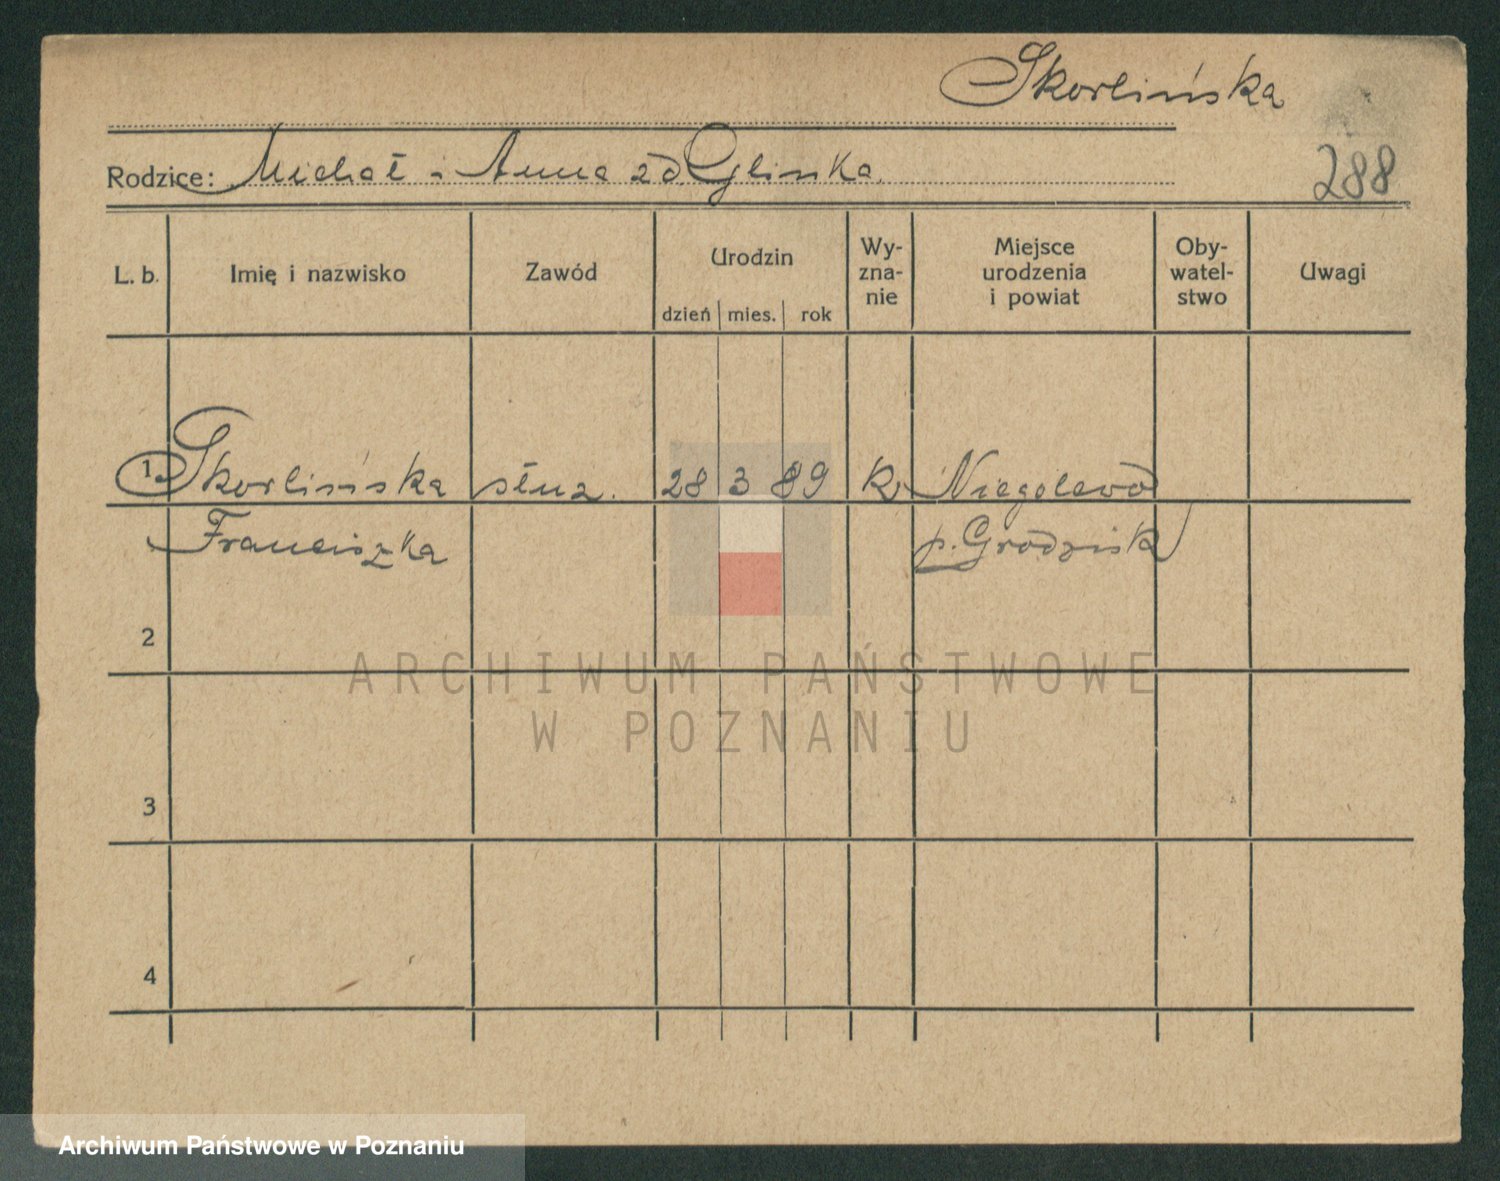 Skorlińska
Rodzice: Michał i Anna zd. Glinka.
288
L. b. Imię i nazwisko Zawód Urodzin dzień mies. rok Wy-zna-nie Miejsce urodzenia i powiat Oby-watel-stwo Uwagi
1 Skorlińska służ. 28 3 89 k
Franciszka p. Grodzisk
2
ARCHIWUM PAŃSTWOWE
W POZNANIU
3
4
Archiwum Państwowe w Poznaniu